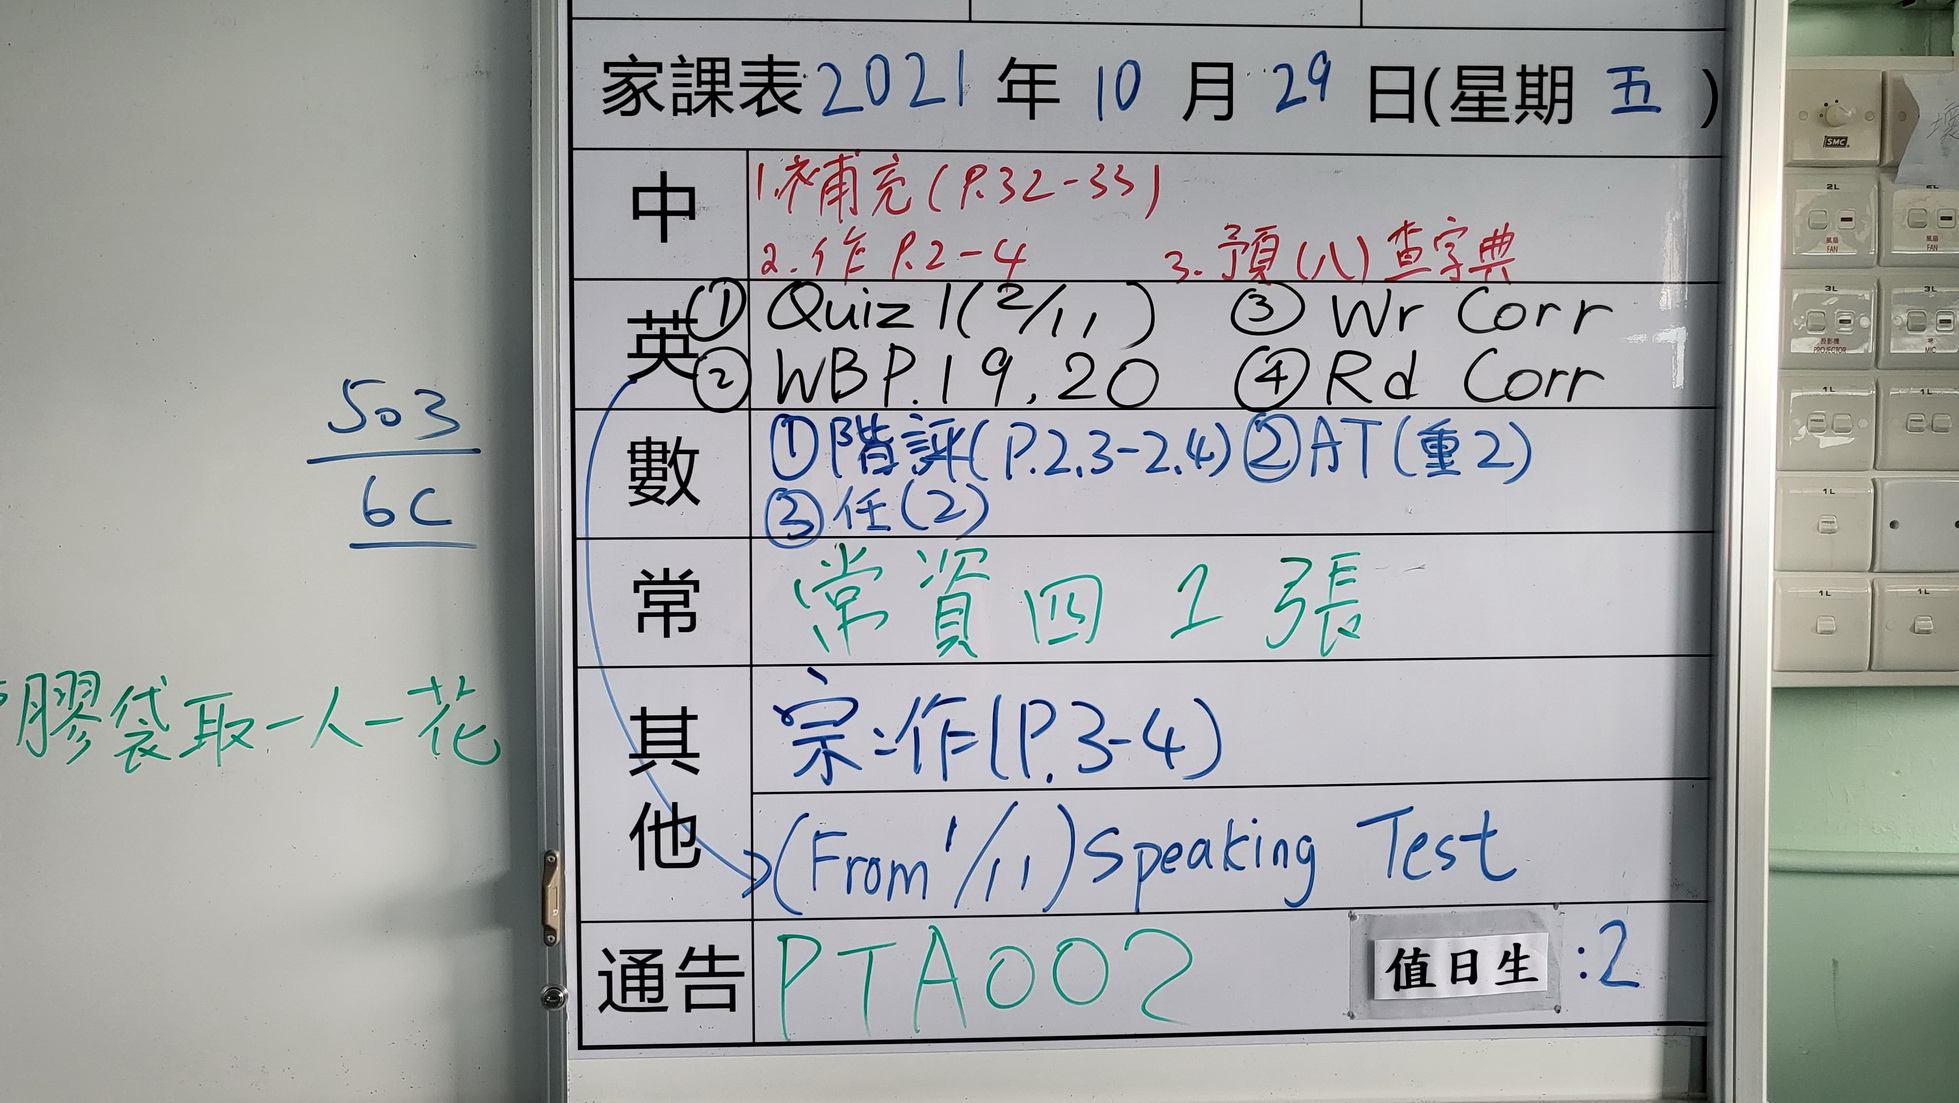 家課表 2021 年 10 月 29 日(星期 五 )
中
1.補充(P.32-33)
2.作 P.2-4 3.預(八)查字典
英
① Quiz 1(2/11) ③ Wr Corr
② WBP.19,20 ④ Rd Corr
數
①階評(P.2.3-2.4)②AT(重2)
③任(2)
常
常資四 1 張
其他
宗:作(P.3-4)
(From 1/11) Speaking Test
通告
PTA002
值日生 :2
503
6C
膠袋取一人一花
SMC
2L
風扇
FAN
FAN
3L
3L
投影機
PROJECTOR
MIC
1L
1L
1L
1L
1L